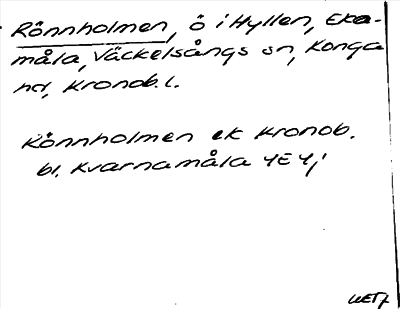 Rönnholmen, ö i Hyllen, Eka-
måla, Väckelsångs sn, Konga
hd, Kronob.l.
Rönnholmen ek Kronob.
bl. Kvarnamåla 4E4j